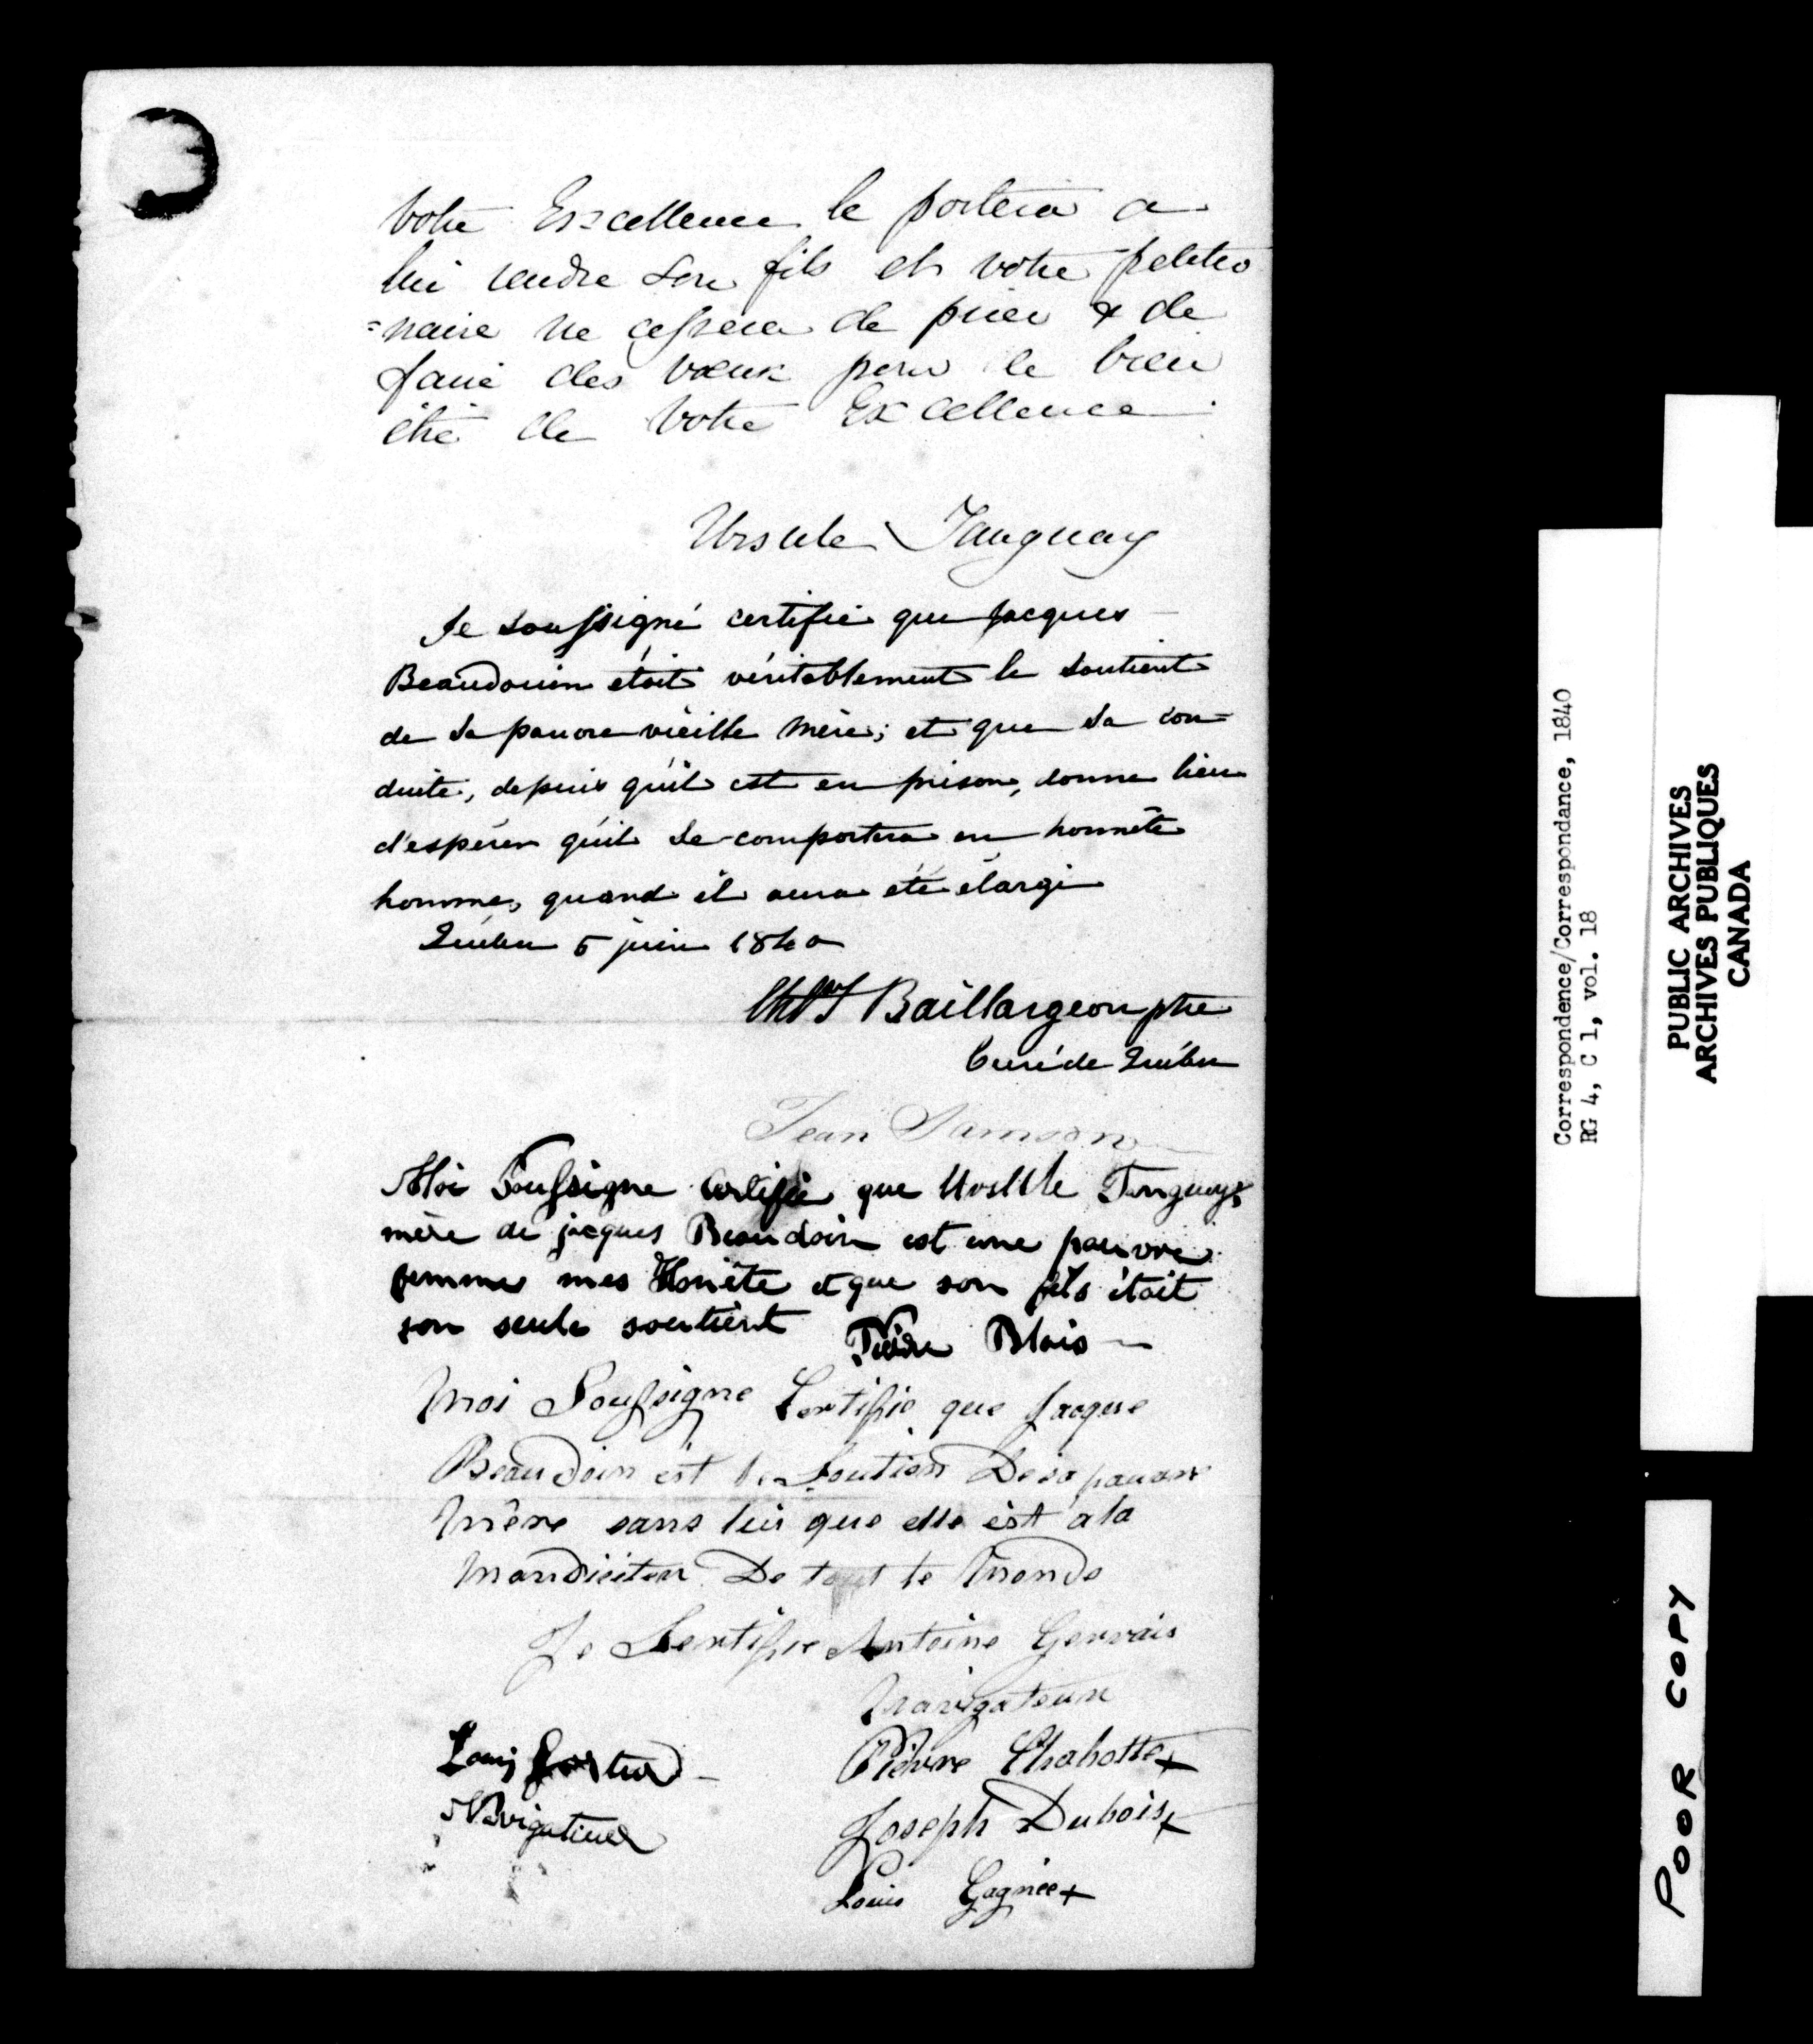 Votre Excellence le portera a
lui rendre son fils et votre petitio
=naire ne cessera de prier & de
faire des vœux pour le bien
être de Votre Excellence.
Ursule Tanguay
Je soussigné certifie que Jacques
Beaudouin étoit véritablement le soutient
de sa pauvre vieille mère; et que sa con=
duite, depuis qu'il est en prison, donne lieu
d'espérer qu'il se comportera en honnête
homme, quand il aura été élargi
Québec 5 juin 1840
Baillargeon ptre
Curé de Québec
Jean Samson
Moi Soussigne Certifie que Ursule Tanguay,
mère de jacques Beaudoin est une pauvre
femme mes Honète et que son fils était
son seule soutient Pière Blais
Moi Soussigne Certifie que Jacque
Beaudoin est le Soutien De sa pauvre
Mère sans lui que elle est a la
De tout le Monde
Je Certifie Antoine Gervais
Navigateur
Louis
Navigateur
Pierre Chabotte +
Joseph Dubois +
Louis Gagnée +
Correspondence/Correspondance, 1840
RG 4, C 1, vol. 18
PUBLIC ARCHIVES
ARCHIVES PUBLIQUES
CANADA
POOR COPY